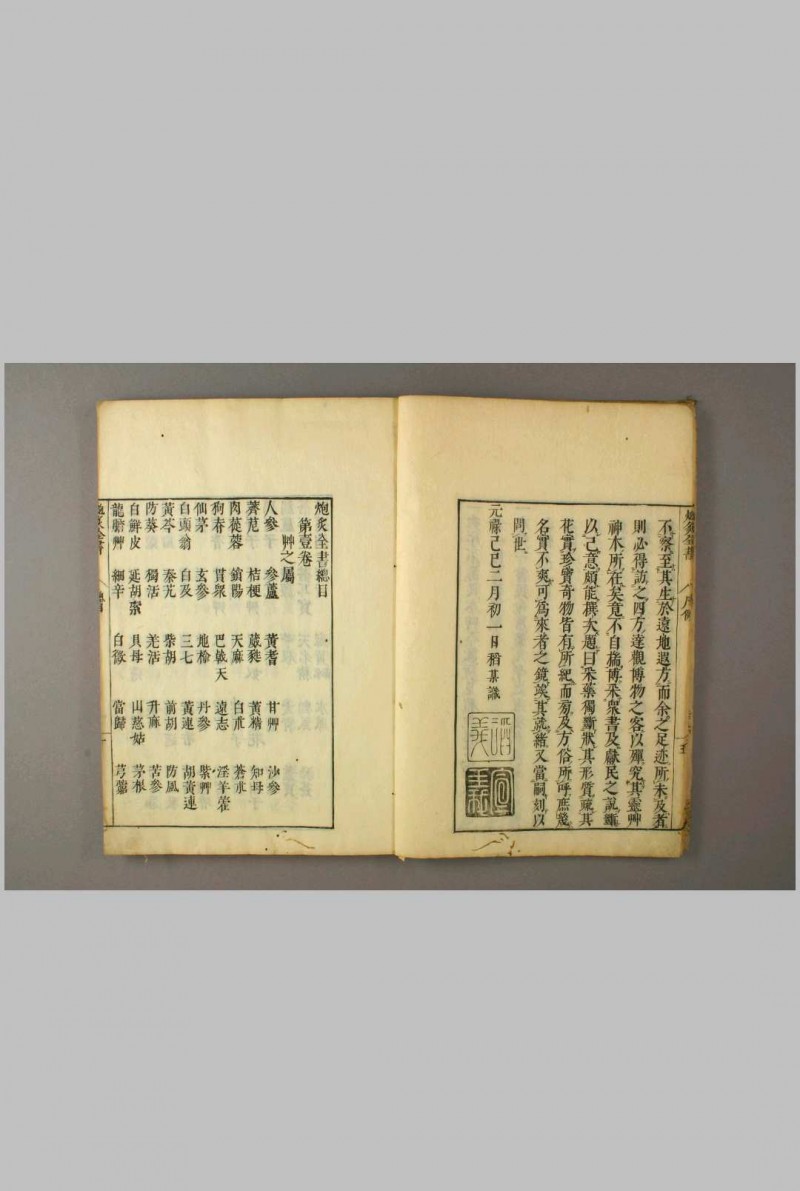 不察至其生於遠地遐方而余之足迹所未及者
則必得訪之四方達觀博物之客以殫究其靈艸
神木所在矣竟不自揣博采衆書及獻民之説雖
以己意頗能撰次題曰采藥獨斷狀其形質疏其
花實珍寶奇物皆有所紀而芻及方俗所呼庶幾
名實不爽可爲來者之鏡竢其就緒又當嗣刻以
問世
元祿己巳二月初一日稻 識
炮炙全書總目
第壹卷
艸之屬
人參 參蘆 黃耆 甘艸 沙參
薺苨 桔梗 葳蕤 黃精 知母
肉蓯蓉 鎖陽 天麻 白朮 蒼朮
狗脊 貫衆 巴戟天 遠志 淫羊藿
仙茅 玄參 地榆 丹參 紫艸
白頭翁 白及 三七 黃連 胡黃連
黃芩 秦艽 柴胡 前胡 防風
防葵 獨活 羌活 升麻 苦參
白鮮皮 延胡索 貝母 山慈姑 茅根
龍膽艸 細辛 白薇 當歸 芎藭
炮炙全書